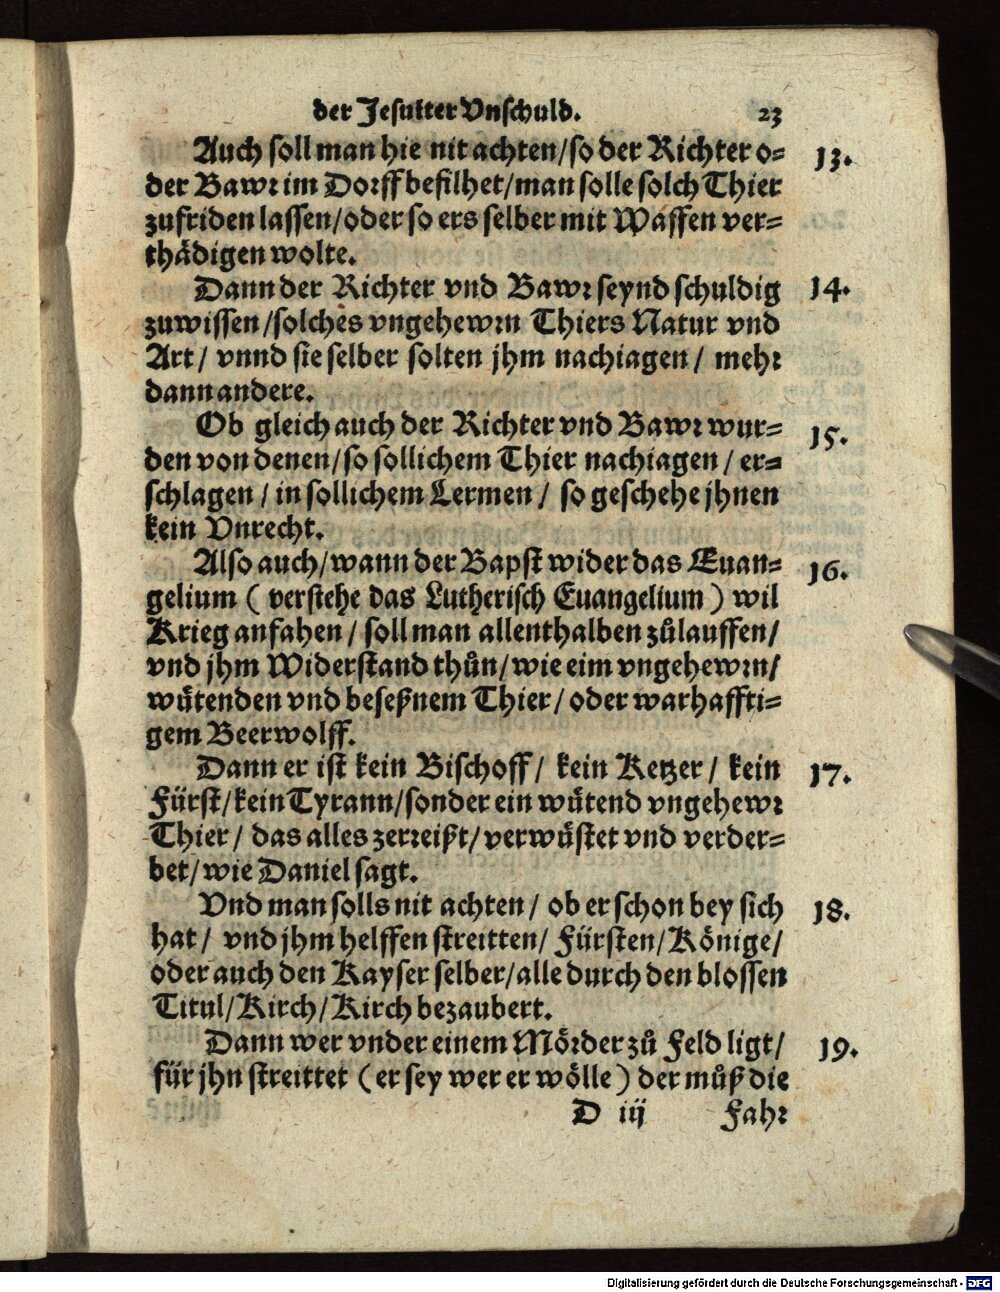 der Jesuiter Vnschuld. 23
Auch soll man hie nit achten/so der Richter o= 13.
der Bawr im Dorff befilhet/man solle solch Thier
zufriden lassen/oder so ers selber mit Waffen ver=
thädigen wolte.
Dann der Richter vnd Bawr seynd schuldig 14.
zuwissen/solches vngehewrn Thiers Natur vnd
Art/ vnnd sie selber solten jhm nachiagen/ mehr
dann andere.
Ob gleich auch der Richter vnd Bawr wur= 15.
den von denen/so sollichem Thier nachiagen/ er=
schlagen/ in sollichem Lermen/ so geschehe jhnen
kein Vnrecht.
Also auch/wann der Bapst wider das Euan= 16.
gelium ( verstehe das Lutherisch Euangelium ) wil
Krieg anfahen/ soll man allenthalben zůlauffen/
vnd jhm Widerstand thůn/wie eim vngehewrn/
wütenden vnd beseßnem Thier/oder warhaffti=
gem Beerwolff.
Dann er ist kein Bischoff/ kein Ketzer/ kein 17.
Fürst/kein Tyrann/sonder ein wütend vngehewr
Thier/ das alles zerreißt/verwüstet vnd verder=
bet/wie Daniel sagt.
Vnd man solls nit achten/ ob er schon bey sich 18.
hat/ vnd jhm helffen streitten/ Fürsten/Könige/
oder auch den Kayser selber/alle durch den blossen
Titul/Kirch/Kirch bezaubert.
Dann wer vnder einem Mörder zů Feld ligt/ 19.
für jhn streittet (er sey wer er wölle) der můß die
D iij Fahr
Digitalisierung gefördert durch die Deutsche Forschungsgemeinschaft - DFG